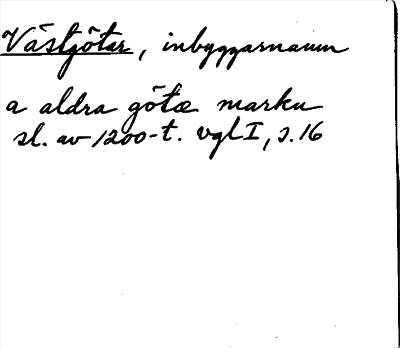 Västgötar, inbyggarnamn
a aldra götæ marku
sl. av 1200-t. vgl I, s. 16